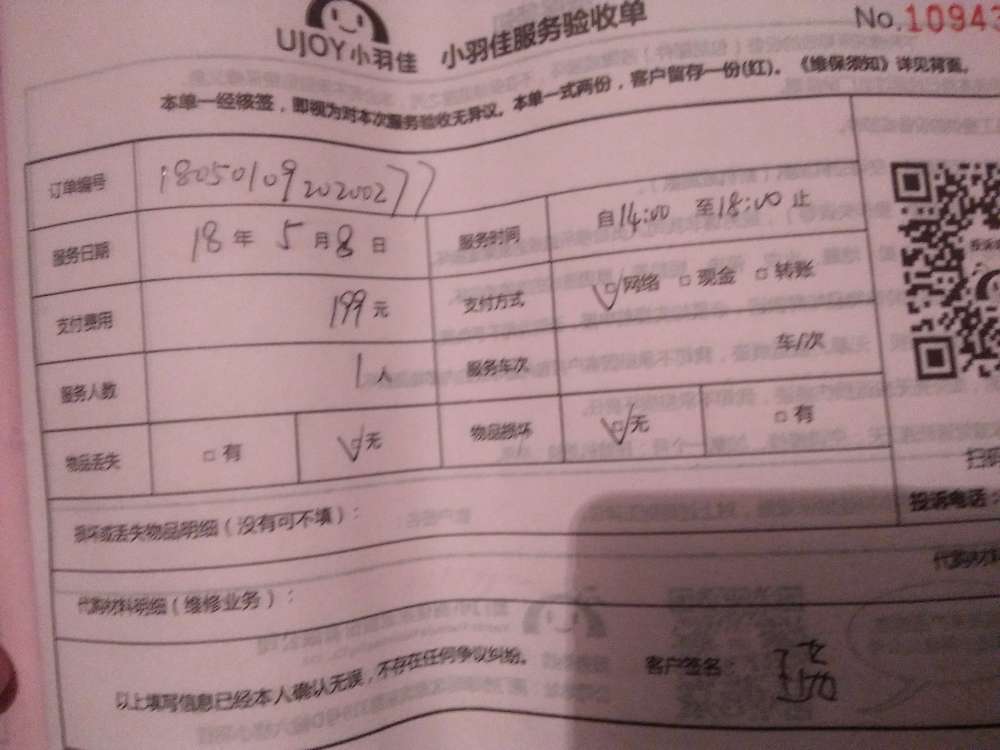 UJOY小羽佳 小羽佳服务验收单 No.10943
本单一经核签，即视为对本次服务验收无异议。本单一式两份，客户留存一份(红)。《维保须知》详见背面。
订单编号 1805010920200277
服务日期 18年5月8日 服务时间 自14:00 至18:00止
支付费用 199元 支付方式 □网络 □现金 □转账
服务人数 1人 服务车次 车/次
物品丢失 □有 □无 物品损坏 □无 □有
损坏或丢失物品明细（没有可不填）：
投诉电话：
代购材料明细（维修业务）：
以上填写信息已经本人确认无误，不存在任何争议纠纷。 客户签名：